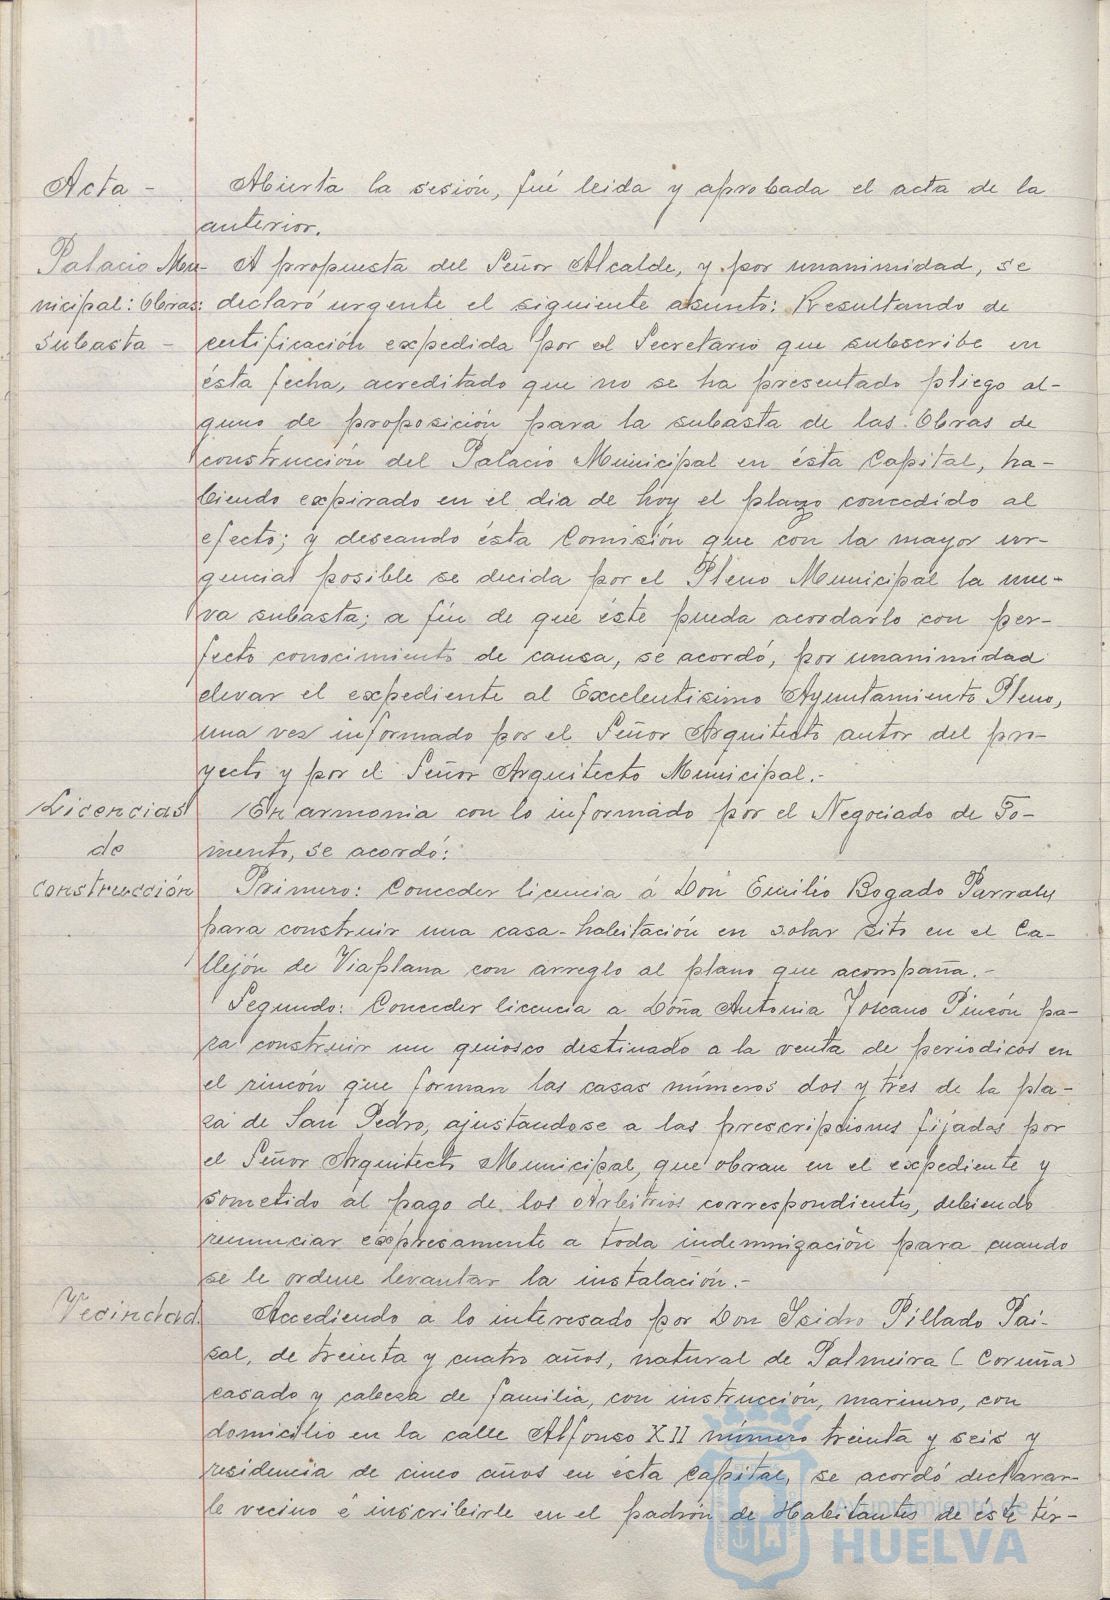 Acta - Abierta la sesión, fué leida y aprobada el acta de la
anterior.
Palacio Mu- A propuesta del Señor Alcalde, y por unanimidad, se
nicipal: Obras: declaró urgente el siguiente asunto: Resultando de
Subasta - certificación expedida por el Secretario que subscribe en
ésta fecha, acreditado que no se ha presentado pliego al-
guno de proposición para la subasta de las Obras de
construcción del Palacio Municipal en ésta Capital, ha-
biendo expirado en el dia de hoy el plazo concedido al
efecto; y deseando ésta Comisión que con la mayor ur-
gencia posible se decida por el Pleno Municipal la nue-
va subasta; a fín de que éste pueda acordarlo con per-
fecto conocimiento de causa, se acordó, por unanimidad
elevar el expediente al Excelentisimo Ayuntamiento Pleno,
una vez informado por el Señor Arquitecto autor del pro-
yecto y por el Señor Arquitecto Municipal.-
Licencias En armonia con lo informado por el Negociado de Fo-
de mento, se acordó:
construcción Primero: Conceder licencia á Don Emilio Bogado Parrales
para construir una casa-habitación en solar sito en el Ca-
llejón de Viaplana con arreglo al plano que acompaña.-
Segundo: Conceder licencia a Doña Antonia Toscano Pinzón pa-
ra construir un quiosco destinado a la venta de periodicos en
el rincón que forman las casas números dos y tres de la pla-
za de San Pedro, ajustandose a las prescripciones fijadas por
el Señor Arquitecto Municipal, que obran en el expediente y
sometido al pago de los Arbitrios correspondientes, debiendo
renunciar expresamente a toda indemnización para cuando
se le ordene levantar la instalación.-
Vecindad. Accediendo a lo interesado por Don Isidro Pillado Pai-
sal, de treinta y cuatro años, natural de Palmeira (Coruña)
casado y cabeza de familia, con instrucción, marinero, con
domicilio en la calle Alfonso XII número treinta y seis y
residencia de cinco años en ésta Capital, se acordó declarar-
le vecino é inscribirle en el padrón de Habitantes de éste tér-
Ayuntamiento de
HUELVA